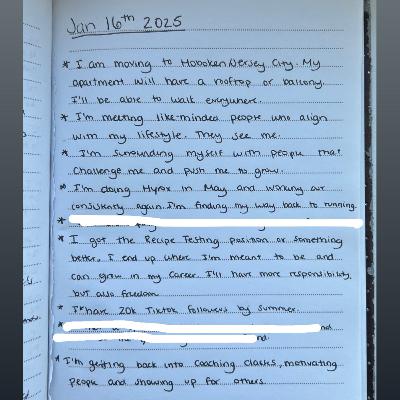 Jan 16th 2025
* I am moving to Hoboken/Jersey City. My
apartment will have a rooftop or balcony.
I'll be able to walk everywhere.
* I'm meeting like-minded people who align
with my lifestyle. They see me.
* I'm surounding myself with people that
Challenge me and push me to grow.
* I'm doing Hyrox in May and working out
consistently again. I'm finding my way back to running.
*
* I got the Recipe Testing position or something
better. I end up where I'm meant to be and
can grow in my career. I'll have more responsibility,
but also freedom
* I have 20k Tiktok followers by summer.
*
* I'm getting back into coaching classes, motivating
people and showing up for others.